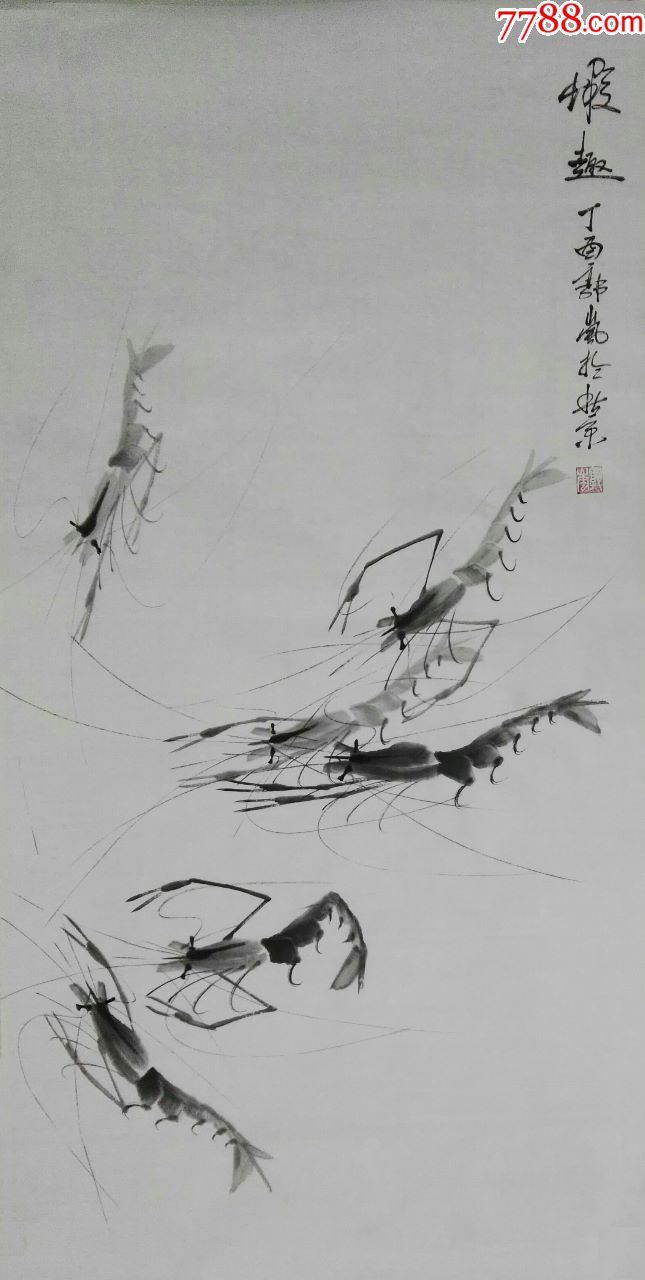 7788.com
蝦趣
丁酉郭嵐於北京